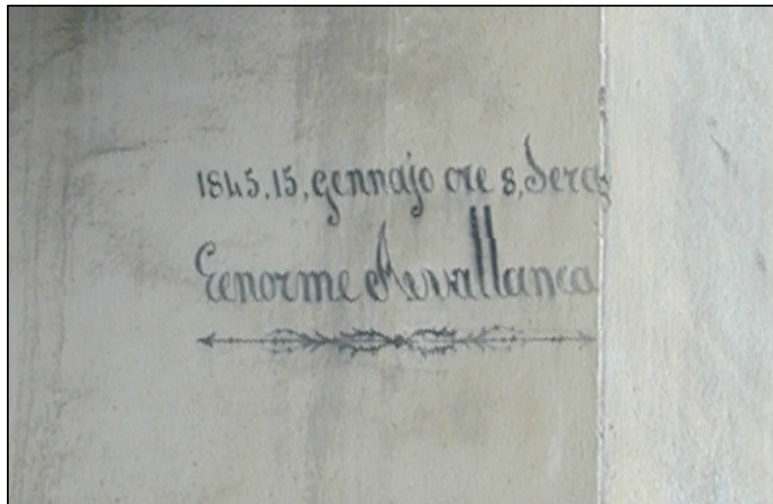 1845, 15, gennajo ore 8, Sera
Eenorme Revallanca